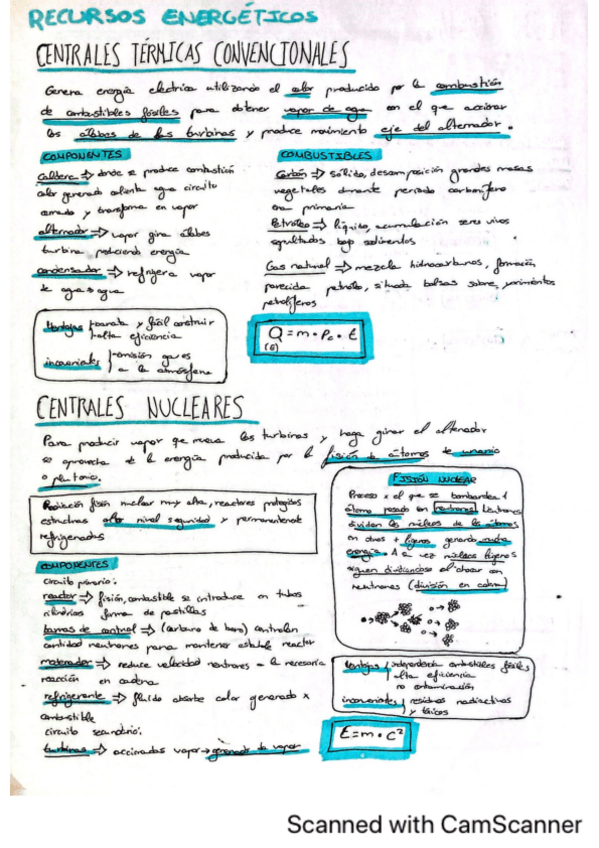 RECURSOS ENERGÉTICOS
CENTRALES TÉRMICAS CONVENCIONALES
Genera energía eléctrica utilizando el calor producido por la combustión
de combustibles fósiles para obtener vapor de agua con el que accionar
los álabes de las turbinas y produce movimiento eje del alternador.
COMPONENTES
Caldera → donde se produce combustión
calor generado calienta agua circuito
cerrado y transforma en vapor
alternador → vapor gira álabes
turbina produciendo energía
condensador → refrigera vapor
de agua a agua
COMBUSTIBLES
Carbón → sólido, descomposición grandes masas
vegetales durante periodo carbonífero
era primaria
Petróleo → líquido, acumulación seres vivos
sepultados bajo sedimentos
Gas natural → mezcla hidrocarburos, formación
parecida petróleo, situada bolsas sobre yacimientos
petrolíferos
Ventajas barata y fácil construir
alta eficiencia
inconvenientes emisión gases
a la atmósfera
Q = m • Pc • E
CENTRALES NUCLEARES
Para producir vapor que mueva las turbinas y haga girar el alternador
se aprovecha de la energía producida por la fisión de átomos de uranio
o plutonio.
Radiación fisión nuclear muy alta, reactores protegidos
estructuras alto nivel seguridad y permanentemente
refrigerados
COMPONENTES
circuito primario:
reactor → fisión, combustible se introduce en tubos
cilíndricos forma de pastillas
barras de control → (carburo de boro) controlan
cantidad neutrones para mantener estable reactor
moderador → reduce velocidad neutrones a la necesaria
reacción en cadena
refrigerante → fluido absorbe calor generado x
combustible
circuito secundario:
turbinas → accionadas vapor → generador de vapor
FISIÓN NUCLEAR
Proceso x el que se bombardea 1
átomo pesado con neutrones. Neutrones
dividen los núcleos de los átomos
en otros + ligeros generando mucha
energía. A su vez núcleos ligeros
siguen dividiéndose al chocar con
neutrones (división en cadena)
Ventajas independencia combustibles fósiles
alta eficiencia
no contaminación
inconvenientes residuos radiactivos
y tóxicos
E=m•c²
Scanned with CamScanner